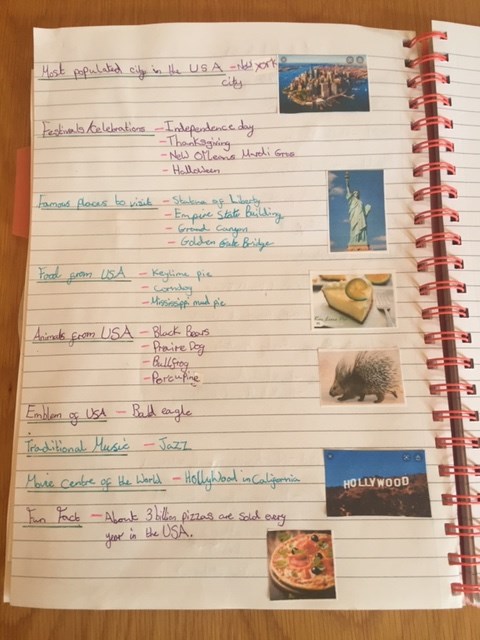 Most populated city in the USA - New York
city
Festivals/Celebrations - Independence day
- Thanksgiving
- New Orleans Mardi Gras
- Halloween
Famous places to visit - Statue of Liberty
- Empire State Building
- Grand Canyon
- Golden Gate Bridge
Food from USA - Keylime pie
- corndog
- Mississippi mud pie
Animals from USA - Black Bears
- Prairie Dog
- Bullfrog
- Porcupine
Emblem of USA - Bald eagle
Traditional Music - Jazz
Movie Centre of the World - Hollywood in California
HOLLYWOOD
Fun Fact - About 3 billion pizzas are sold every
year in the USA.